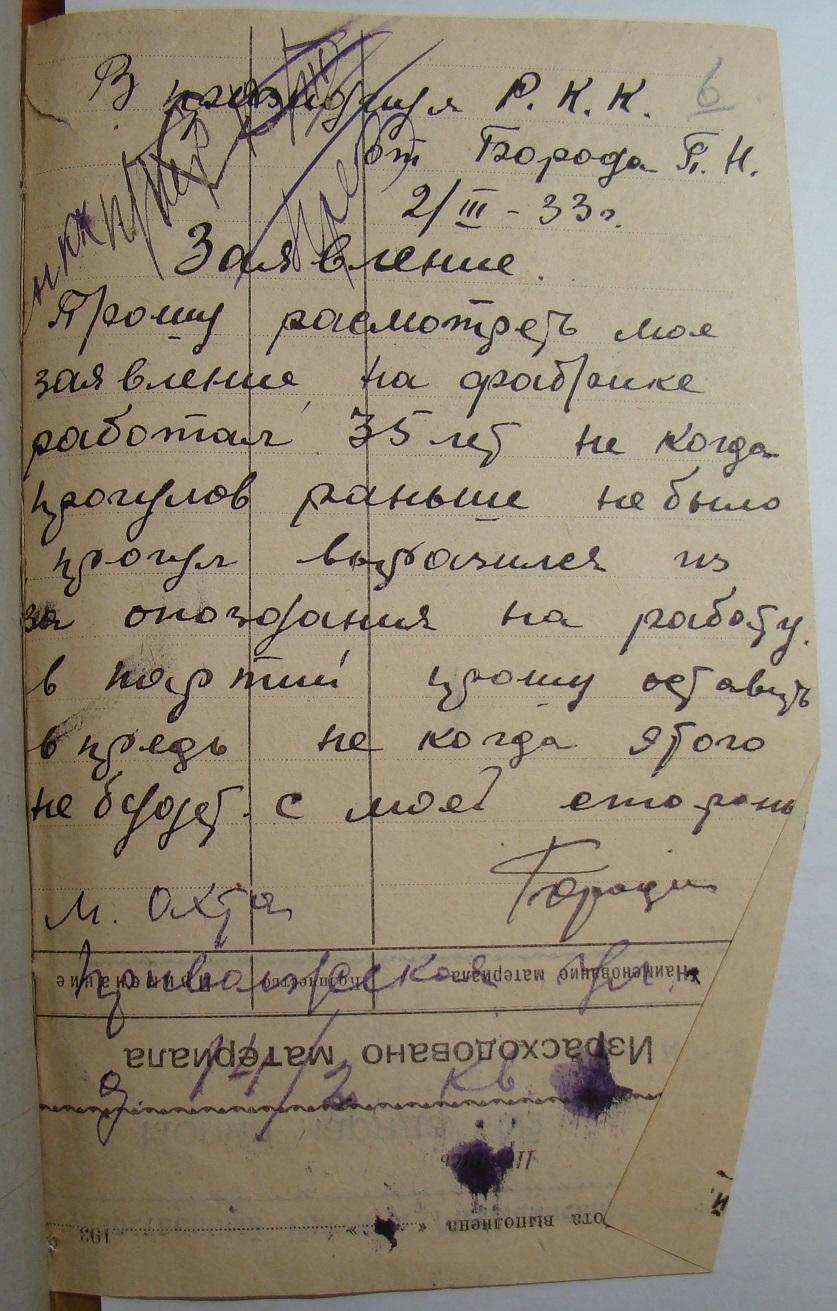 В президиум Р.К.К. 6
от Борода П.Н.
2/III-33г.
Заявление.
Прошу расмотреть мое
заявление на фабрике
работал 35 лет не когда
прогулов раньше не было
прогул выразился из
за опоздания на работу.
в партии прошу оставить
впредь не когда этого
не будет с моей стороны
М. Охта Борода
ул.
д. 14/2 кв.
Наименование материала Количество Примечание
Израсходовано материала
ота выполнена « » 193